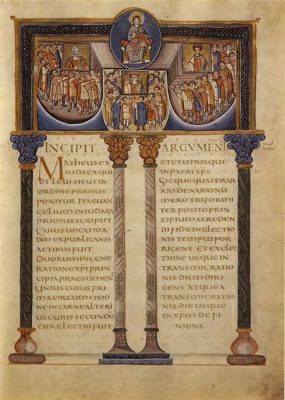 INCIPIT
Matheus ex
iudaea qui
et levi sicut in
ordine primus
ponitur ita evan
gelium in iudaea
primus scripsit
cuius vocatio ad
dm ex publicanis
actibus fuit
duorum in gene
ratione xpi prin
cipia praesumens
unius cuius pri
ma circumcisio
in carne alteri
us cuius secundu
cor electio fuit
ARGVMENT
Et ex utrisque
in patrib xps
Sicque quaterna
rio denario nu
mero triforme
ter posito prin
cipium a creden
di fide in electio
nis tempus por
rigens Et ex elec
tione usque in
transmigratio
nis diem diri
gens Atque a
transmigratio
nis die
usque in xpm de fi
niens